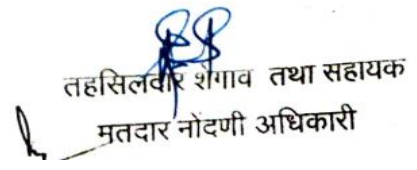 तहसिलदार शेगाव तथा सहायक
मतदार नोंदणी अधिकारी